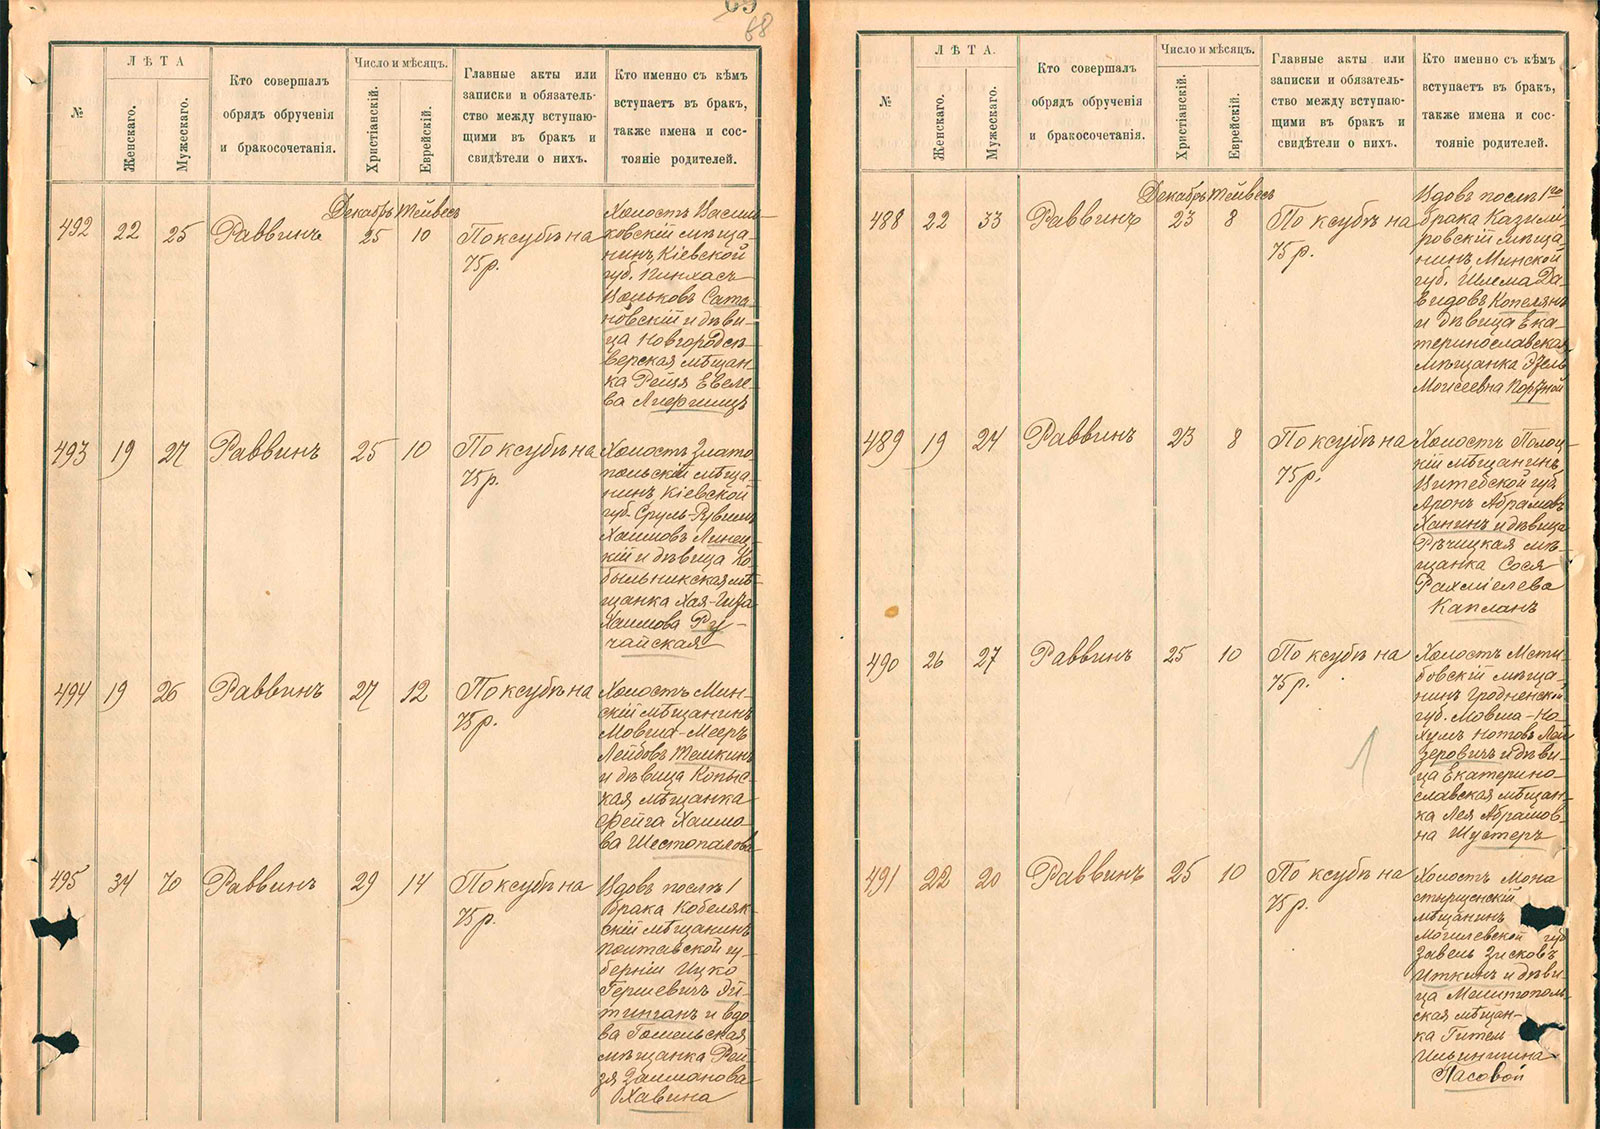 69
68
№
ЛѢТА
Женскаго.
Мужескаго.
Кто совершалъ
обрядъ обрученія
и бракосочетанія.
Число и мѣсяцъ.
Христіанскій.
Еврейскій.
Главные акты или
записки и обязатель-
ство между вступаю-
щими въ бракъ и
свидѣтели о нихъ.
Кто именно съ кѣмъ
вступаетъ въ бракъ,
также имена и сос-
тояніе родителей.
Декабрь Тейвесъ
492 22 25 Раввинъ 25 10 По ксубѣ на
75 р.
Холостъ Василь-
ковскій мѣща-
нинъ, Кіевской
губ. Пинхасъ
Вольковъ Сата-
новскій и дѣви-
ца Новгородсѣ-
верская мѣщан-
ка Рейзя Евеле-
ва
493 19 27 Раввинъ 25 10 По ксубѣ на
75 р.
Холостъ Злато
польскій мѣща-
нинъ Кіевской
губ. Сруль-Рувимъ
Хаимовъ Линец-
кій и дѣвица Ко-
быльникская мѣ-
щанка Хая-Гиза
Хаимова Ру-
чайская
494 19 26 Раввинъ 27 12 По ксубѣ на
75 р.
Холостъ Мин-
скій мѣщанинъ
Мовша-Мееръ
Лейбовъ Темкинъ
и дѣвица Копыс-
кая мѣщанка
Фейга Хаимо-
ва Шестопалова
495 34 70 Раввинъ 29 14 По ксубѣ на
75 р.
Вдовъ послѣ 1
брака Кобеляк-
скій мѣщанинъ
Полтавской гу-
берніи Ицко
Гершевичъ Эй-
тинганъ и вдо-
ва Гомельская
мѣщанка Рей-
зя Залманова
Хавина
№
ЛѢТА.
Женскаго.
Мужескаго.
Кто совершалъ
обрядъ обрученія
и бракосочетанія.
Число и мѣсяцъ.
Христіанскій.
Еврейскій.
Главные акты или
записки и обязатель-
ство между вступаю-
щими въ бракъ и
свидѣтели о нихъ.
Кто именно съ кѣмъ
вступаетъ въ бракъ,
также имена и сос-
тояніе родителей.
Декабрь Тейвесъ
488 22 33 Раввинъ 23 8 По ксубѣ на
75 р.
Вдовъ послѣ 1го
брака Казими-
ровскій мѣща-
нинъ Минской
губ. Шлема Да-
видовъ Копелянъ
и дѣвица Ека-
теринославская
мѣщанка Эзель
Моисеевна Портной
489 19 24 Раввинъ 23 8 По ксубѣ на
75 р.
Холостъ Полоц-
кій мѣщанинъ,
Витебской губ.
Аронъ Абрамовъ
Ханинъ и дѣвица
Рѣчицкая мѣ-
щанка Сося
Рахміелева
Капланъ
490 26 27 Раввинъ 25 10 По ксубѣ на
75 р.
Холостъ Мсти-
бовскій мѣща-
нинъ Гродненской
губ. Мовша-Но-
хумъ Нотовъ Лей
зеровичъ и дѣви-
ца Екатерино-
славская мѣщан-
ка Лея Абрамов-
на Шустеръ
1
491 22 20 Раввинъ 25 10 По ксубѣ на
75 р.
Холостъ Мона
стырщенскій
мѣщанинъ
Могилевской губ
Завель Зисковъ
Иткинъ и дѣви-
ца Мелитополь-
ская мѣщан-
ка Гитель
Ильинишна
Пасовой